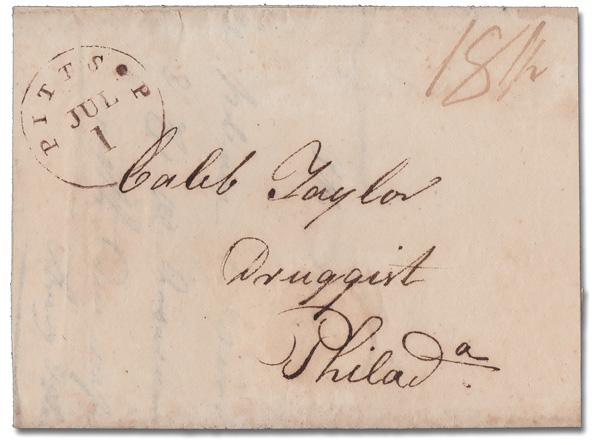 PITTS•P
JUL
1
18 1/2
Caleb Taylor
Druggist
Philad.a